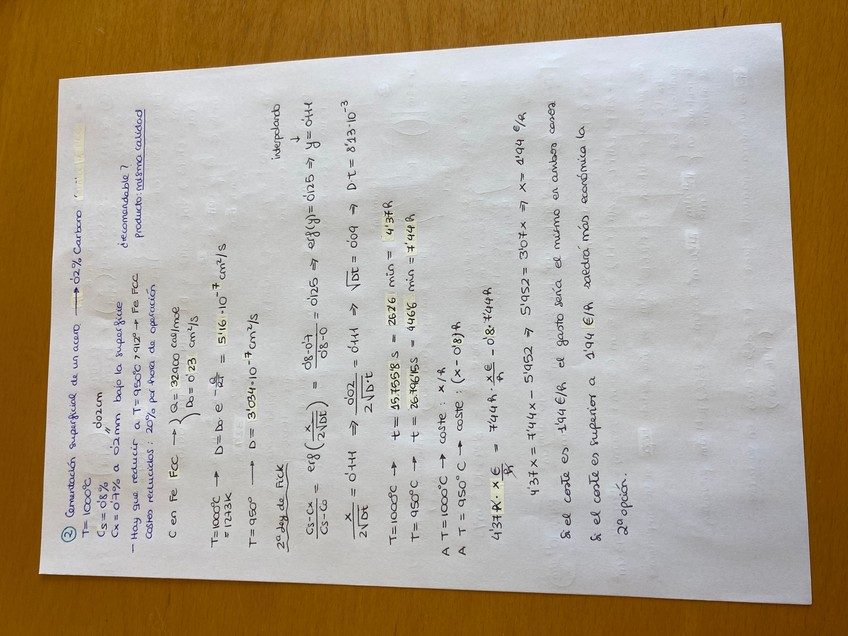 ② Cementación superficial de un acero ⟶ 0'2% Carbono
T = 1000°C
Cs = 0'8% 0'02cm
Cx = 0'7% a 0'2mm bajo la superficie
- Hay que reducir a T=950°C > 912° → Fe FCC ¿recomendable?
costes reducidos: 20% por hora de operación producto: misma calidad
C en Fe FCC → { Q = 32900 cal/mol
D₀ = 0'23 cm²/s
T=1000°C → D = D₀ e - Q/RT = 5'16·10⁻⁷ cm²/s
= 1273K
T = 950° ⟶ D = 3'034·10⁻⁷ cm²/s
2ª Ley de Fick interpolando ↓
Cs-Cx / Cs-C₀ = erf (x / 2√Dt) = 0'8-0'7 / 0'8-0 = 0'125 ⇒ erf(y) = 0'125 ⇒ y = 0'111
x / 2√Dt = 0'111 ⇒ 0'02 / 2√D·t = 0'111 ⇒ √Dt = 0'09 ⇒ D·t = 8'13·10⁻³
T=1000°C → t = 15.755'8 s = 262'6 min = 4'37h
T= 950°C → t = 26.796'15s = 446'6 min = 7'44h
A T = 1000°C → coste: x/h
A T = 950°C → coste: (x - 0'8)h
4'37h · x €/h = 7'44h · x€/h - 0'8·7'44h
4'37x = 7'44x - 5'952 ⇒ 5'952 = 3'07x ⇒ x = 1'94 €/h
Si el coste es 1'94€/h el gasto sería el mismo en ambos casos
Si el coste es superior a 1'94 €/h saldrá más económica la
2ª opción.